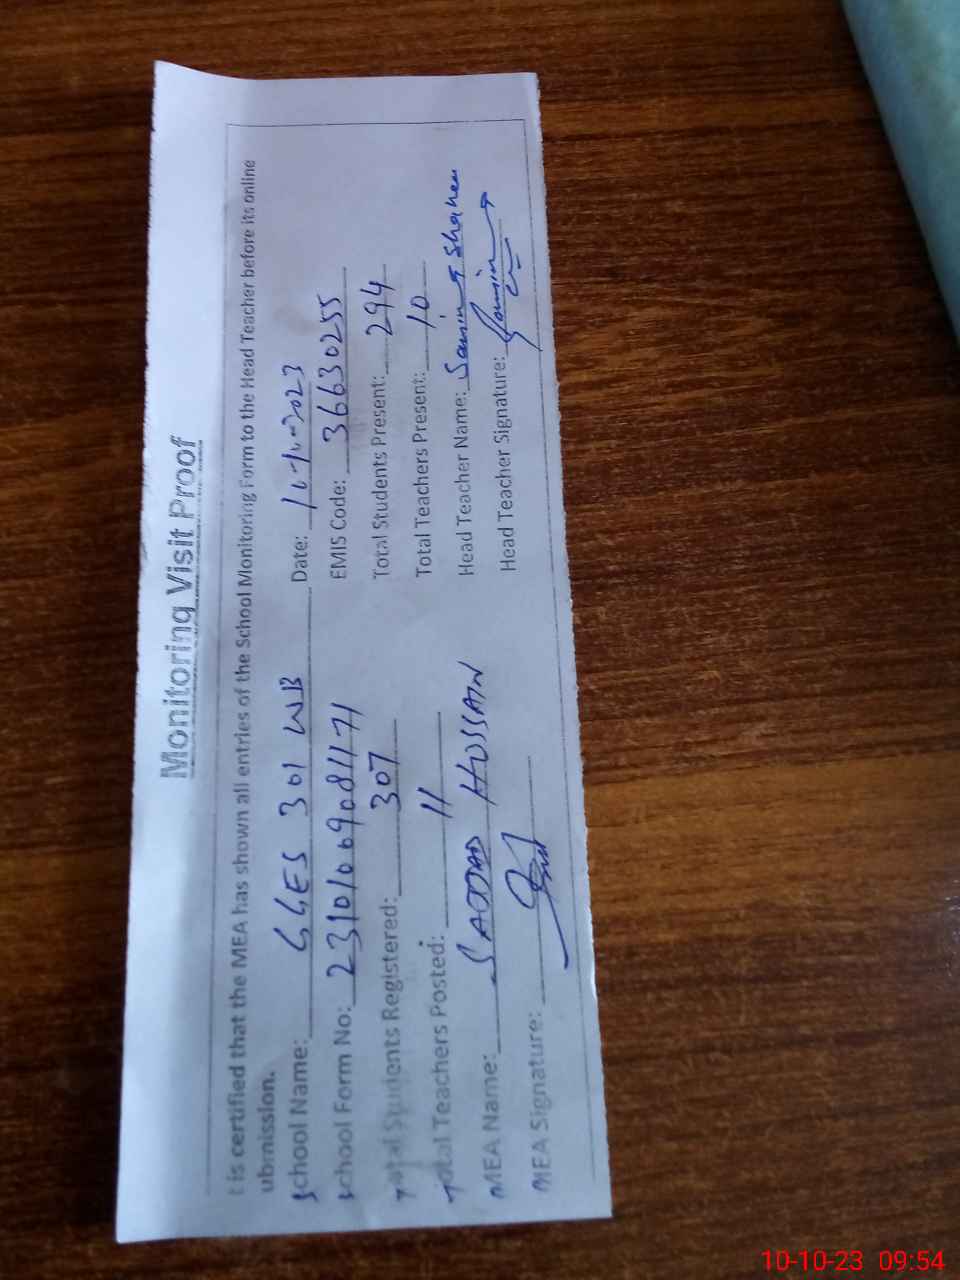 Monitoring Visit Proof
t is certified that the MEA has shown all entries of the School Monitoring Form to the Head Teacher before its online
ubmission.
School Name: GGES 301 WB Date: 10-10-2023
School Form No: 23101069081171 EMIS Code: 36630255
Total Students Registered: 307 Total Students Present: 294
Total Teachers Posted: 11 Total Teachers Present: 10
MEA Name: SAJJAD HUSSAIN Head Teacher Name: Shaheen
MEA Signature: Head Teacher Signature:
10-10-23 09:54